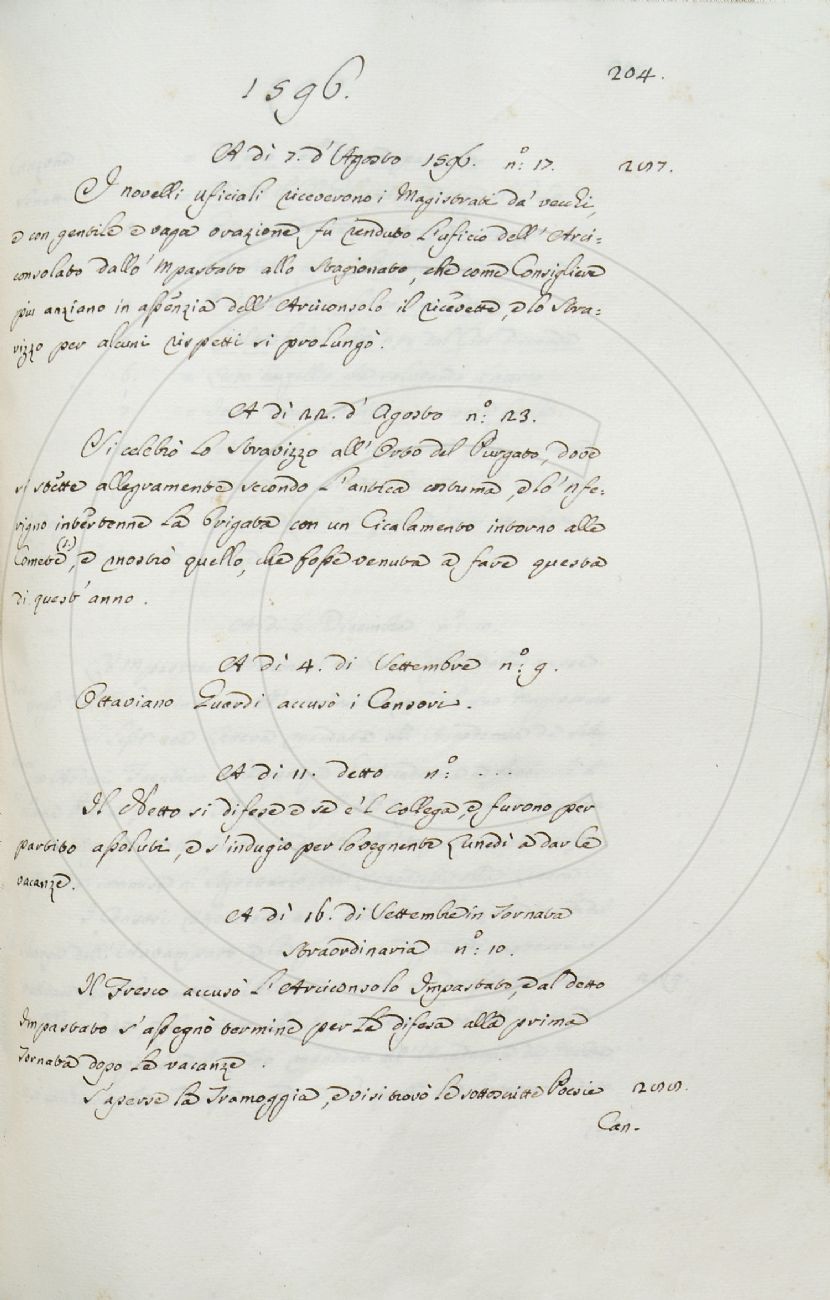 1596.
204.
A dì 7. d'Agosto 1596. n.º 17.
I novelli uficiali riceverono i Magistrati da' vecchi,
e con gentile e vaga orazione fu renduto l'uficio dell'Arci=
consolato dallo 'mpastato allo Stagionato, che come Consigliere
più anziano in assenzia dell'Arciconsolo il ricevette, e lo Stra=
vizzo per alcuni rispetti si prolungò.
A dì 22. d'Agosto n.º 23.
Si celebrò lo Stravizzo all'Orto del Purgato, dove
si stette allegramente secondo l'antica costuma, e lo 'nfe=
rigno intertenne la brigata con un Cicalamento intorno alle
Comete (1.), e mostrò quello, che fosse venuta a fare questa
di quest'anno.
A dì 4. di Settembre n.º 9.
Ottaviano Guardi accusò i Censori.
A dì 11. detto n.º ...
Il Netto si difese e se e 'l collega, e furono per
partito assoluti, e s'indugiò per lo vegnente Lunedì a dar le
vacanze.
A dì 16. di Settembre in Tornata
straordinaria n.º 10.
Il Fresco accusò l'Arciconsolo Impastato, e al detto
Impastato s'assegnò termine per la difesa alla prima
Tornata dopo le vacanze.
S'aperse la Tramoggia, e vi si trovò le sottoscritte Poesie
Can-